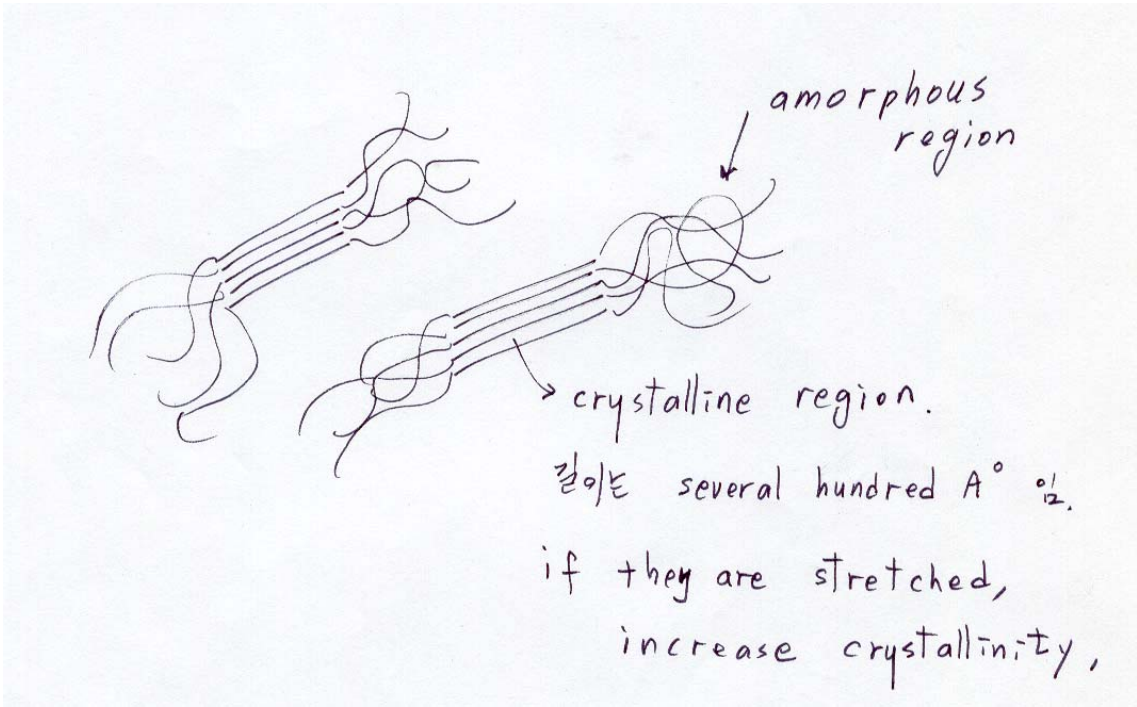 amorphous
region
crystalline region.
길이는 several hundred A° 임.
if they are stretched,
increase crystallinity,